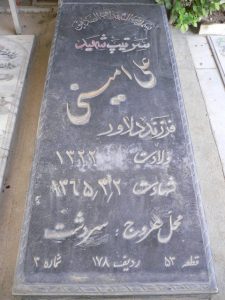 سرتیپ شهید
علی امینی
فرزند دلاور
ولادت ۱۳۲۲
شهادت ۱۳۶۵/۳/۲
محل عروج : سردشت
قطعه ۵۳ ردیف ۱۷۸ شماره ۳